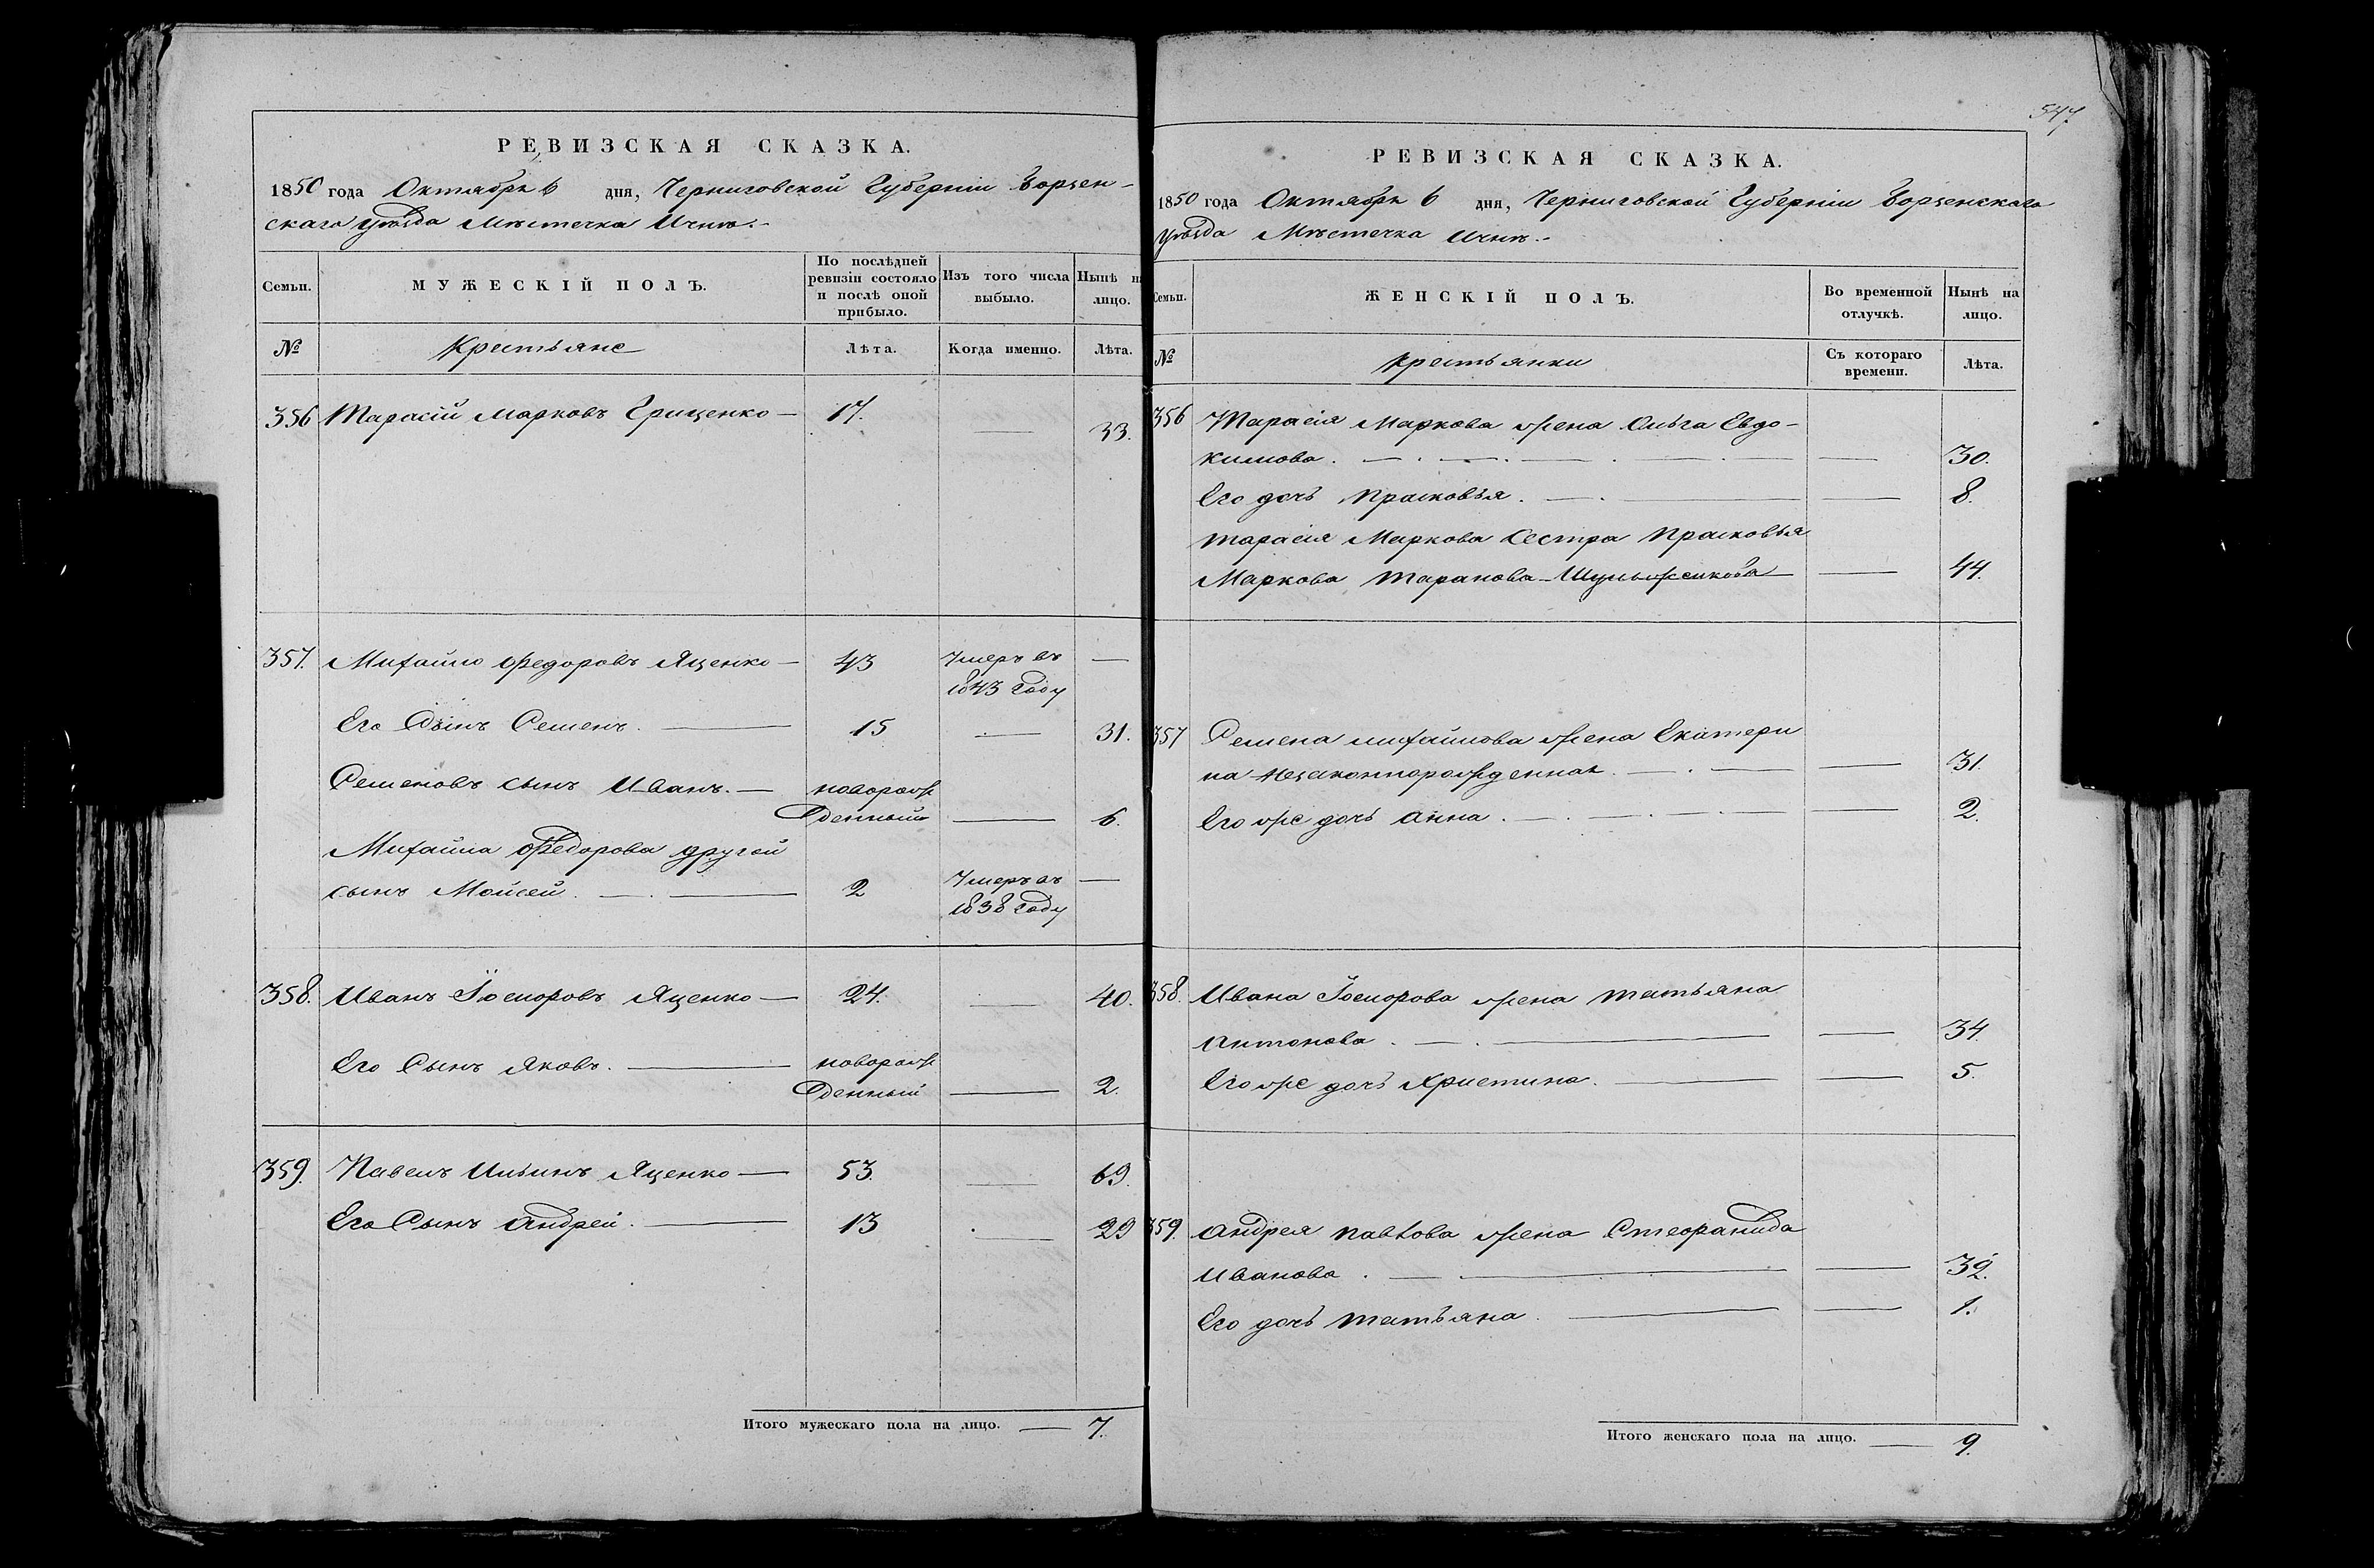 РЕВИЗСКАЯ СКАЗКА.
1850 года Октября 6 дня, Черниговской Губерніи Борзен-
скаго уѣзда Мѣстечка Ични.-
Семьи.
МУЖЕСКІЙ ПОЛЪ.
По послѣдней
ревизіи состояло
и послѣ оной
прибыло.
Изъ того числа
выбыло.
Нынѣ на
лицо.
№ Крестьяне Лѣта. Когда именно. Лѣта.
356 Тарасій Марковъ Гриценко — 17. — 33.
357. Михайло Федоровъ Яценко — 43 Умеръ въ —
1843 году
Его Сынъ Семенъ. — 15 — 31.
Семеновъ сынъ Иванъ. — новорож
денный — 6.
Михайла Федорова другой
сынъ Моисей. — 2 Умеръ въ —
1838 году
358. Иванъ Яценко — 24. — 40.
Его Сынъ Яковъ. — новорож
денный — 2.
359. Павелъ Ильинъ Яценко — 53. — 69.
Его Сынъ Андрей. — 13 — 29
Итого мужескаго пола на лицо. — 7.
547.
РЕВИЗСКАЯ СКАЗКА.
1850 года Октября 6 дня, Черниговской Губерніи Борзенскаго
уѣзда Мѣстечка Ични.-
Семьи.
ЖЕНСКІЙ ПОЛЪ.
Во временной
отлучкѣ.
Нынѣ на
лицо.
№ крестьянки
Съ котораго
времени.
Лѣта.
356 Тарасія Маркова жена Ольга Евдо-
кимова. — — 30.
Его дочь Прасковья. — — 8.
Тарасія Маркова Сестра Прасковья
Маркова — 44.
357 Семена михайлова жена Екатери
на незаконнорожденная. — — 31.
Его же дочь Анна. — — 2.
358. Ивана жена Татьяна
Антонова. — — 34.
Его же дочь Христина. — — 5.
359. Андрея павлова жена Стефанида
Иванова. — — 32.
Его дочь Татьяна. — — 1.
Итого женскаго пола на лицо. — 9.